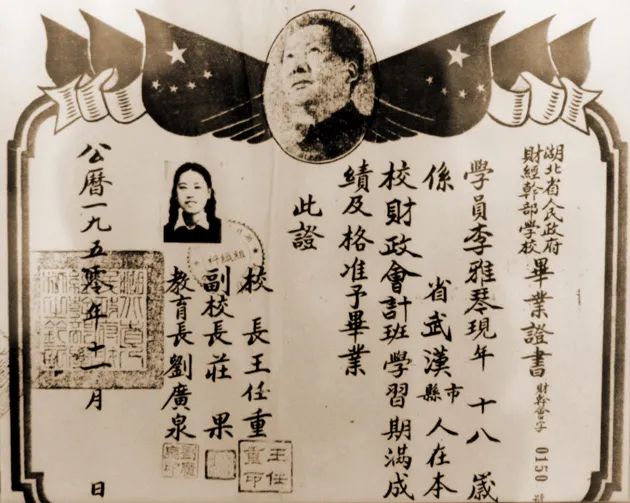 湖北省人民政府
財經幹部學校
畢業證書
財幹會字
0150
號
學員李雅琴現年十八歲
係 省武漢市縣人在本
校財政會計班學習期滿成
績及格准予畢業
此證
校長王任重
副校長莊果
教育長劉廣泉
王任
重印
公曆一九五零年十一月 日